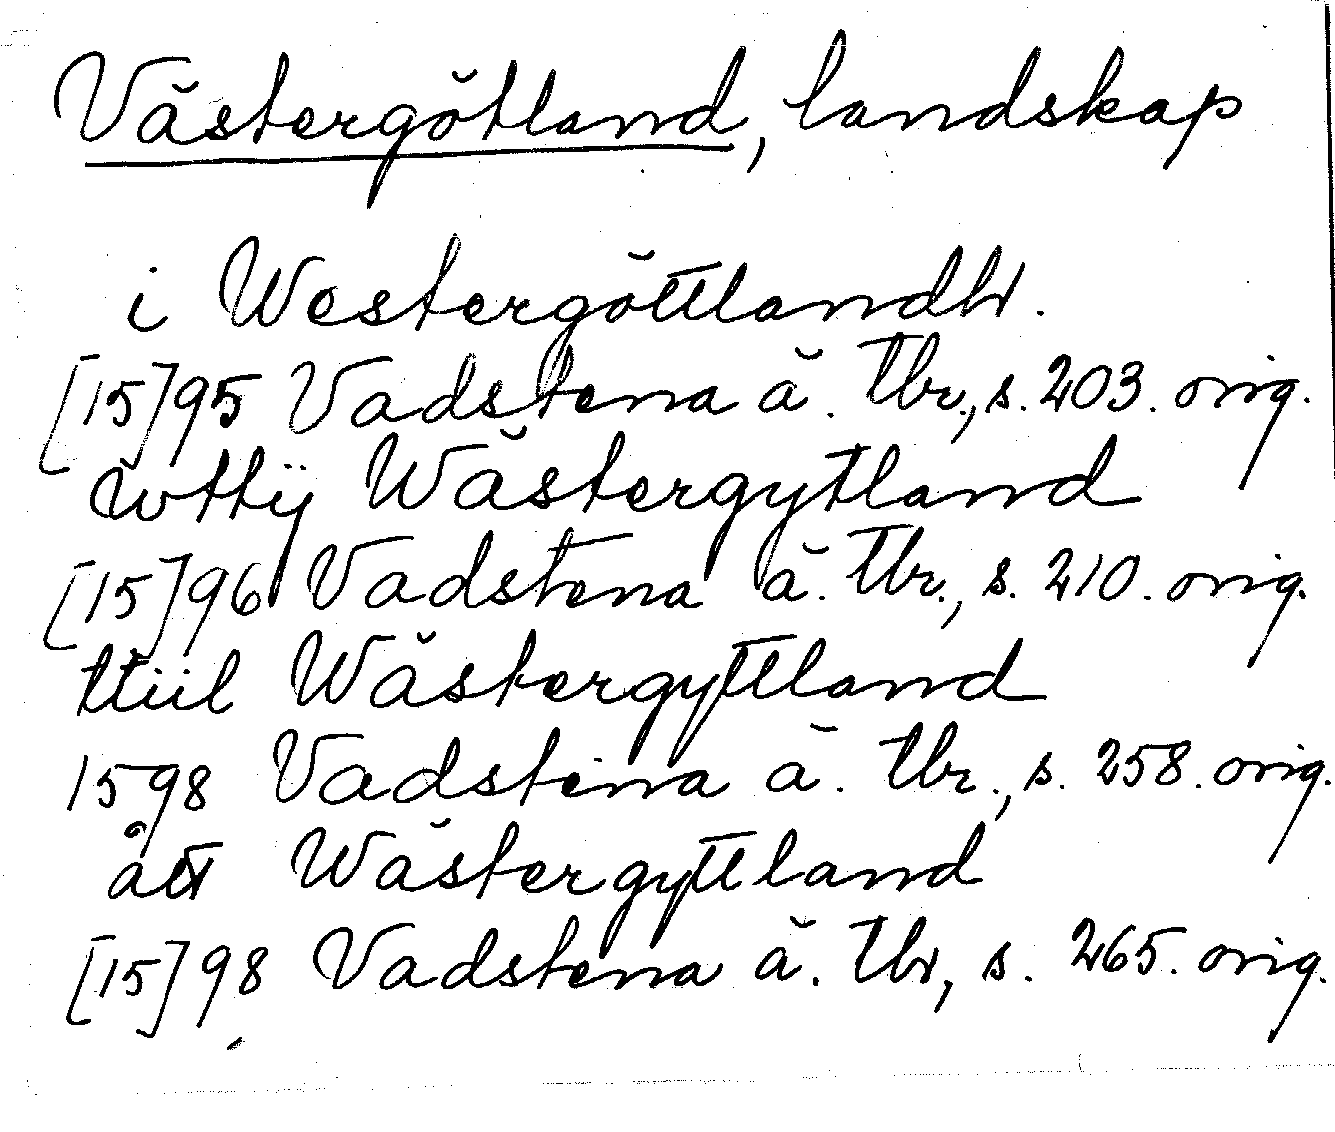 Västergötland, landskap
i Westergöttlandh.
[15]95 Vadstena ä. tbr., s. 203. orig.
wttij Wästergytland
[15]96 Vadstena ä. tbr., s. 210. orig.
ttiil Wästergyttland
1598 Vadstena ä. tbr., s. 258. orig.
ått Wästergyttland
[15]98 Vadstena ä. tbr, s. 265. orig.